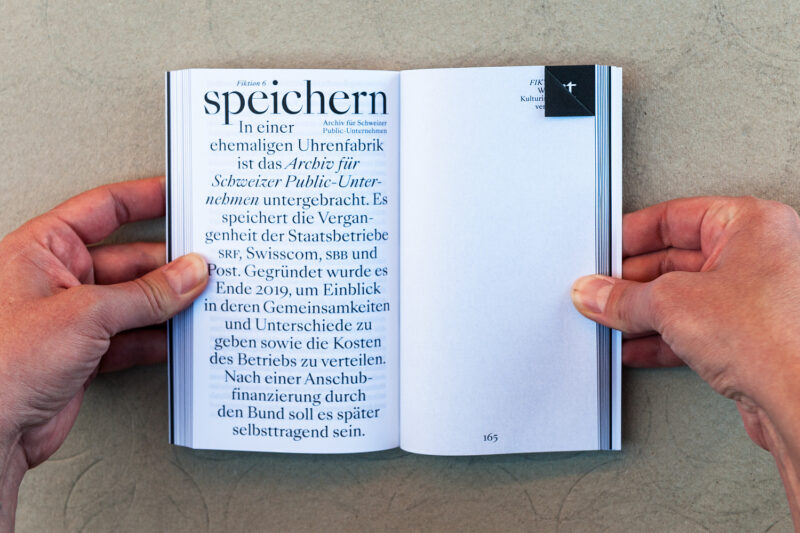 Fiktion 6
speichern
Archiv für Schweizer
Public-Unternehmen
In einer
ehemaligen Uhrenfabrik
ist das Archiv für
Schweizer Public-Unter-
nehmen untergebracht. Es
speichert die Vergan-
genheit der Staatsbetriebe
SRF, Swisscom, SBB und
Post. Gegründet wurde es
Ende 2019, um Einblick
in deren Gemeinsamkeiten
und Unterschiede zu
geben sowie die Kosten
des Betriebs zu verteilen.
Nach einer Anschub-
finanzierung durch
den Bund soll es später
selbsttragend sein.
165